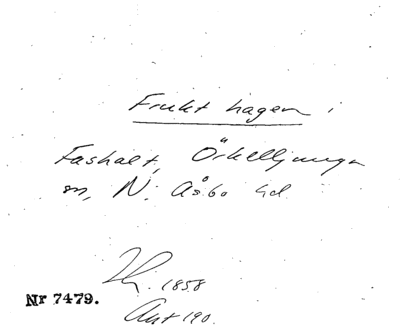 Frukt hagen i
Fashalt, Örkelljunga
sn, N. Åsbo hd
1858
Nr 7479.
Akt 190.